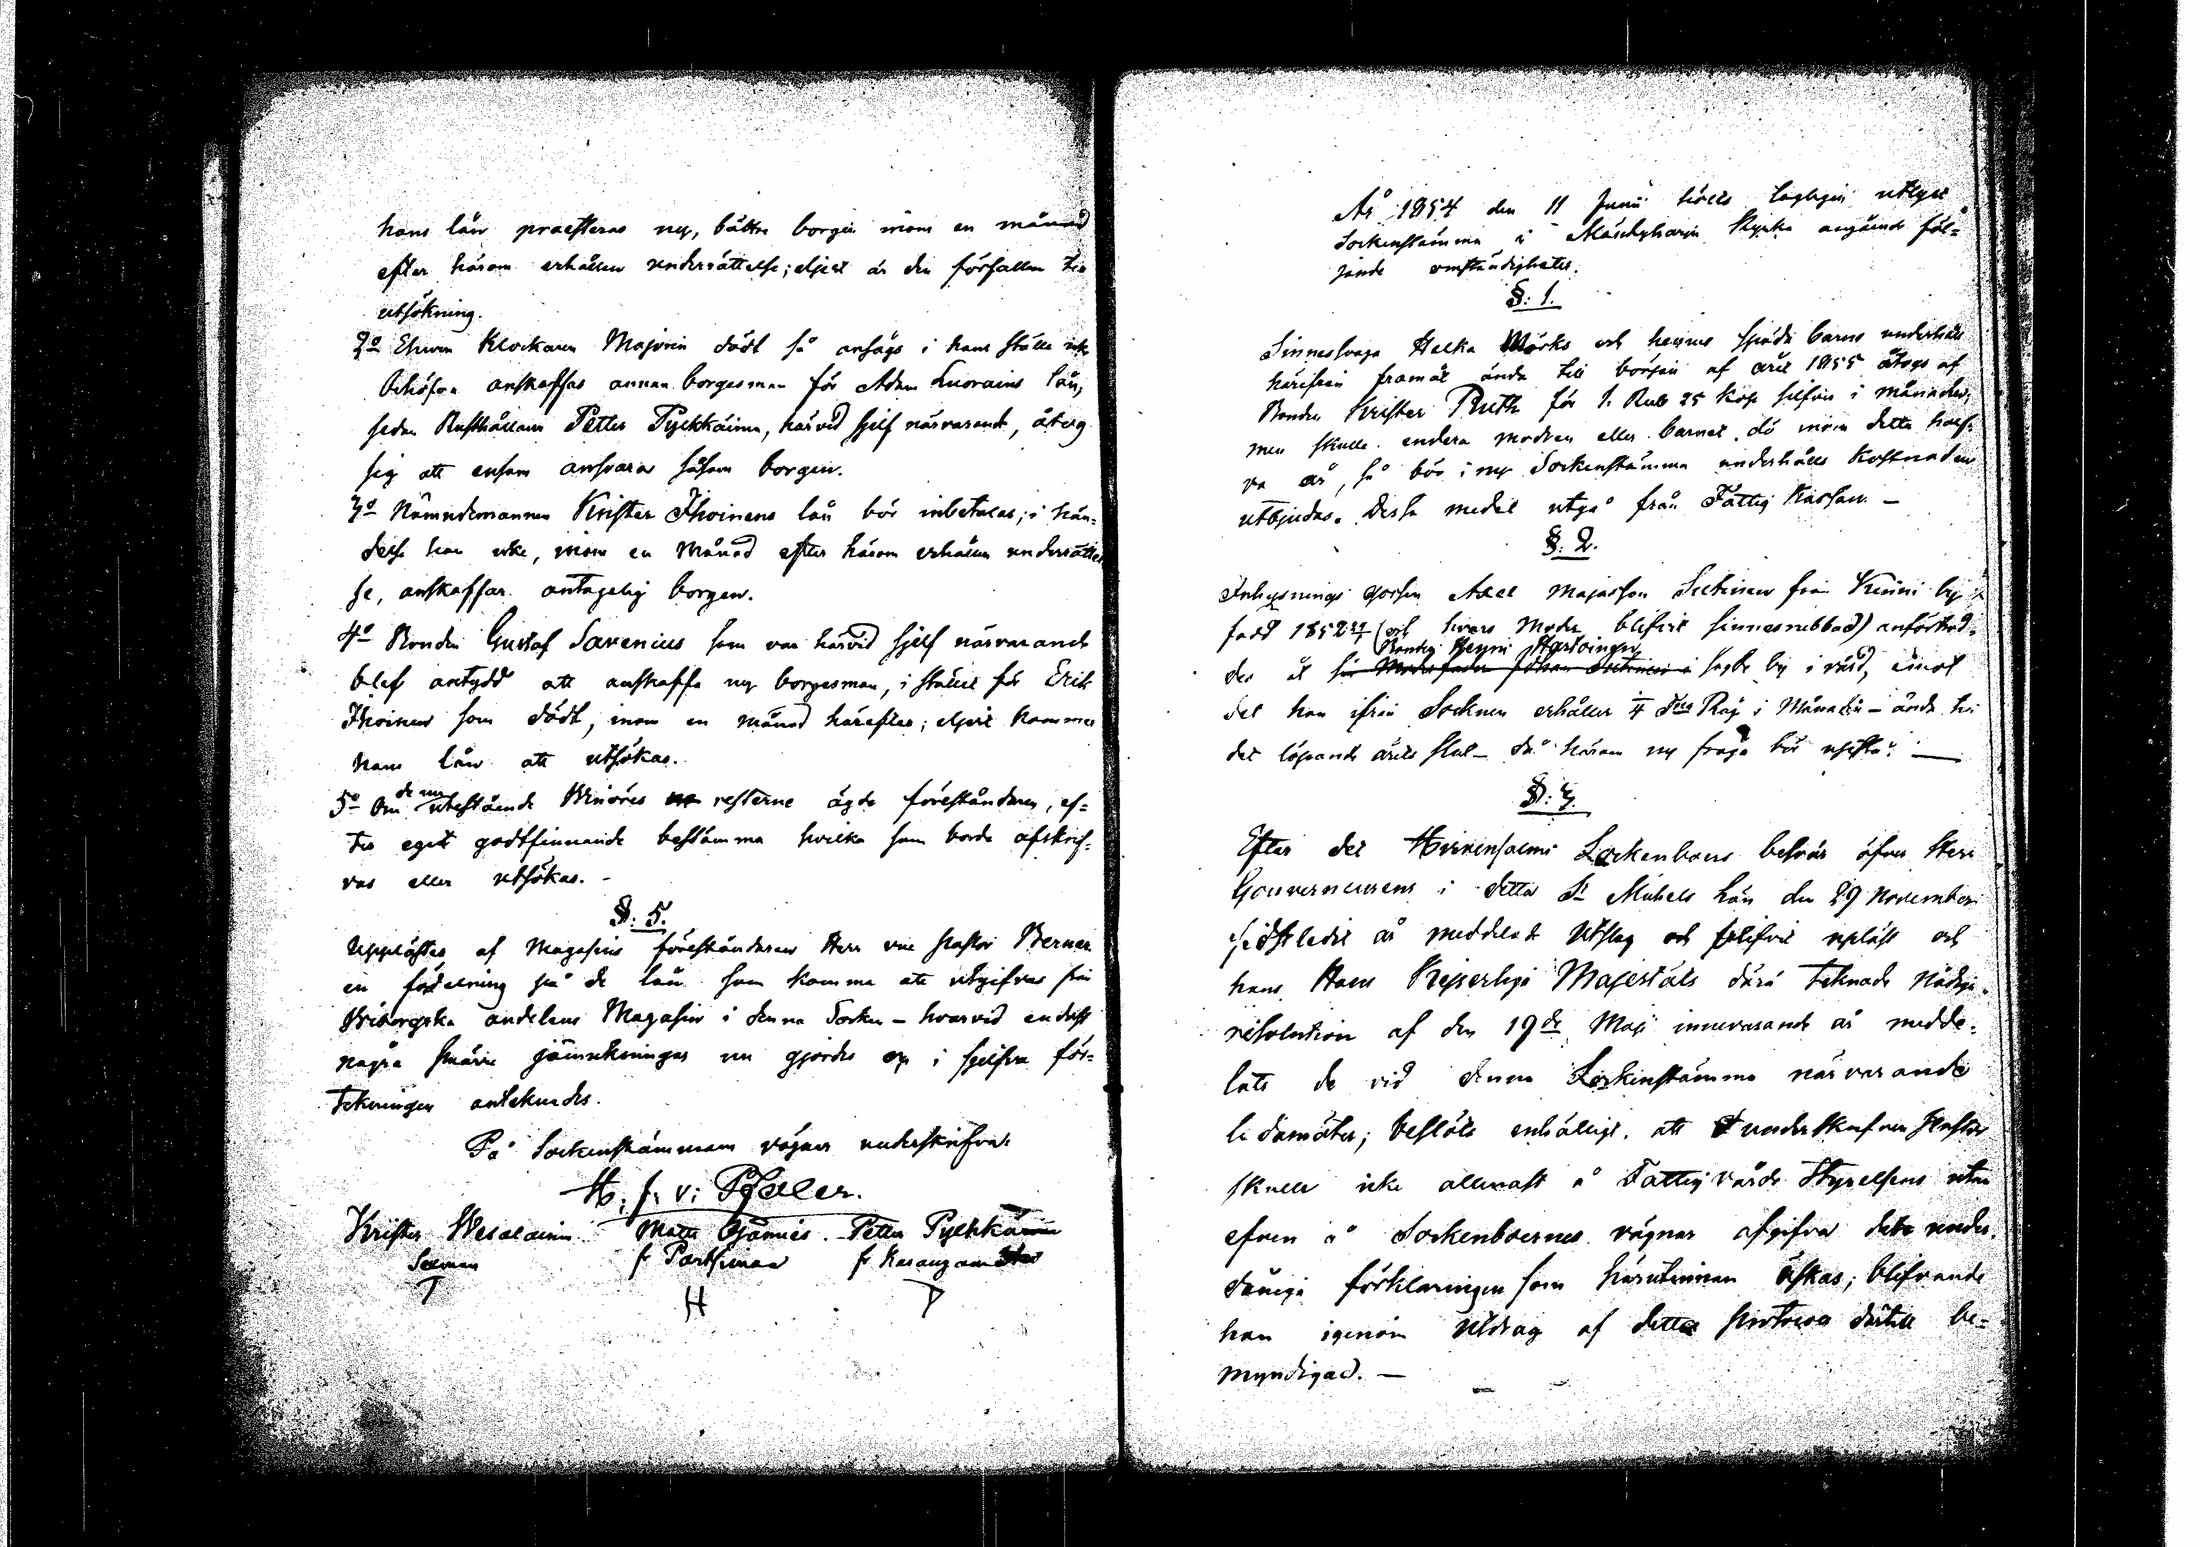 hans lån praesteras ny, bättre borgen inom en månad
efter härom erhållen underrättelse; eljest är den förfallen till
utsökning.
2o Ehuru Klockaren Majorin dödt så ansågs i hans ställe icke
behöfva anskaffas annan borgesman för Adam Kuorains lån,
sedan Rusthållaren Petter Pylkkäinen, härvid sjelf närvarande, åtog
sig att ensam ansvara såsom borgen.
3o Nämndemannen Krister Ihoinens lån bör inbetalas; i hän-
delse han icke, inom en Månad efter härom erhållen underrättel
se, anskaffar antagelig borgen.
4o Bonden Gustaf Savenius som var härvid sjelf närvarande
blef antydd att anskaffa ny borgesman, i stället för Erik
Ihoinen som dödt, inom en månad härefter; eljest kommer
hans lån att utsökas.
5o Om de nu utestående resterne ägde föreståndaren, ef-
ter eget godtfinnande bestämma hvilka som borde afskrif-
vas eller utsökas. -
§: 5.
Upplästes af Magasins föreståndaren Herr vice pastor Berner
en fördelning på de lån som komma att utgifvas från
andelens Magasin i denna Socken - hvarvid endast
några smärre jämnkningar nu gjordes och i sjelfva för-
tekningen anteknades.
På Sockenstämmans vägnar underskrifva
H. f. v: Pfaler.
Krister Wesalainen Matts Ojamies. Petter Pylkkäinen
f Partsimaa f
T H P
År 1854 den 11 Junii hölls lagligen utlyst
Sockenstämma i Mäntyharju Kyrka angående föl-
jande omständigheter.
§: 1.
Sinnessvaga Helka Mörks och hennes späda barns underhåll
härifrån framåt ända till början af året 1855 åtogs af
Bonden Krister Ruth för 1. Rub 25 Kop silfver i månaden;
men skulle endera modren eller barnet dö inom detta half-
va år, så bör i ny Sockenstämma underhålls kostnaden
utbjudas. Dessa medel utgå från Fattig Kassan. -
§: 2.
Inhysnings gossen Axel Majasson Sutinen från Kinni by
född 1852 (och hvars Moder blifvit sinnesrubbad) anförtrod-
Bonden Heyni Hartoinen
des åt Moders fader Johan Sutinen i sagde by i vård, emot
det han ifrån Socknen erhåller Råg i Månaden - ända till
det löpande årets slut - då härom ny fråga bör upstå. -
§: 3.
Efter det Hirvensalmi Sockenboers besvär öfver Herr
Gouverneurens i detta St Michels Län den 29 November
sidstledit år meddelade Utslag och blifvit upläst och
hans Hans Kejserliga Majestäts därå teknade Nådiga
resolution af den 19de Maji innevarande år medde-
lats de vid denna Sockenstämma närvarande
ledamöter; beslöts enhälligt, att underskrefven Pastor
skulle icke allenast å Fattigvårds Styrelsens utan
äfven å Sockenboernes vägnar afgifva det under-
dåniga förklaringen som härutinnan äskas; blifvande
han igenom Utdrag af detta Protocoll dertill be-
myndigad. -